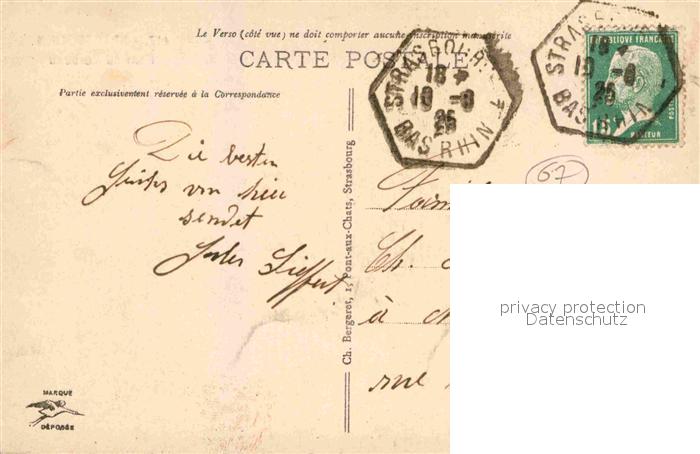 Le Verso (côté vue) ne doit comporter aucune inscription manuscrite
CARTE POSTALE
Partie exclusivement réservée à la Correspondance
STRASBOURG
18
10 - 8
25
BAS RHIN
STRASB
10 - 8
25
BAS RHIN
RÉPUBLIQUE FRANÇAISE
POSTES
15
PASTEUR
67
Die besten
Grüße von hier
sendet
Jules Sieffert
Ch. Bergeret, 1, Pont-aux-Chats, Strasbourg
Famil
Ch.
à
rue
MARQUE
DÉPOSÉE
privacy protection
Datenschutz